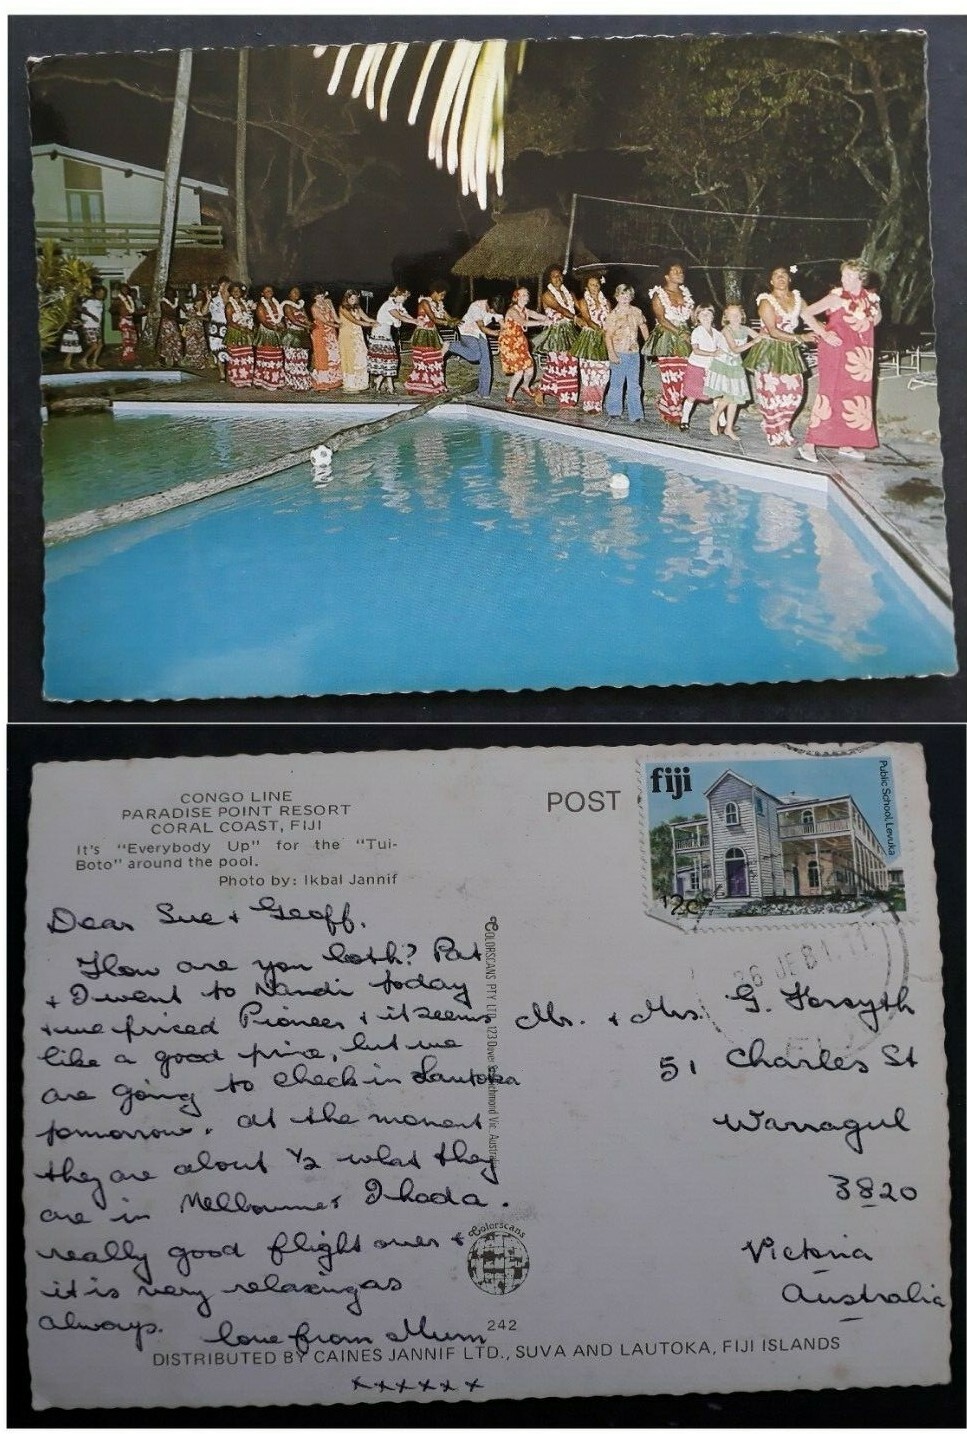 CONGO LINE
PARADISE POINT RESORT
CORAL COAST, FIJI
It's "Everybody Up" for the "Tui-
Boto" around the pool.
Photo by: Ikbal Jannif
POST
fiji
Public School, Levuka
12c
Dear Sue + Geoff.
How are you both? Pat
+ I went to Nandi today
+ we priced Pioneer + it seems
like a good price, but we
are going to check in Lautoka
tomorrow. At the moment
they are about ½ what they
are in Melbourne. I had a
really good flight over +
it is very relaxing as
always.
love from Mum
xxxxxx
COLORSCANS PTY. LTD. 123 Dover Richmond Vic. Australia
Mr. + Mrs. G. Forsyth
51 Charles St
Warragul
3820
Victoria
Australia
Colorscans
242
DISTRIBUTED BY CAINES JANNIF LTD., SUVA AND LAUTOKA, FIJI ISLANDS